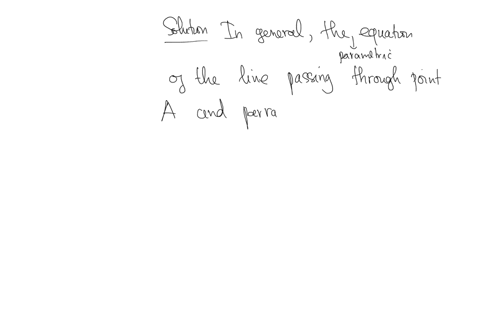 Solution In general, the, equation
parametric
of the line passing through point
A and parra